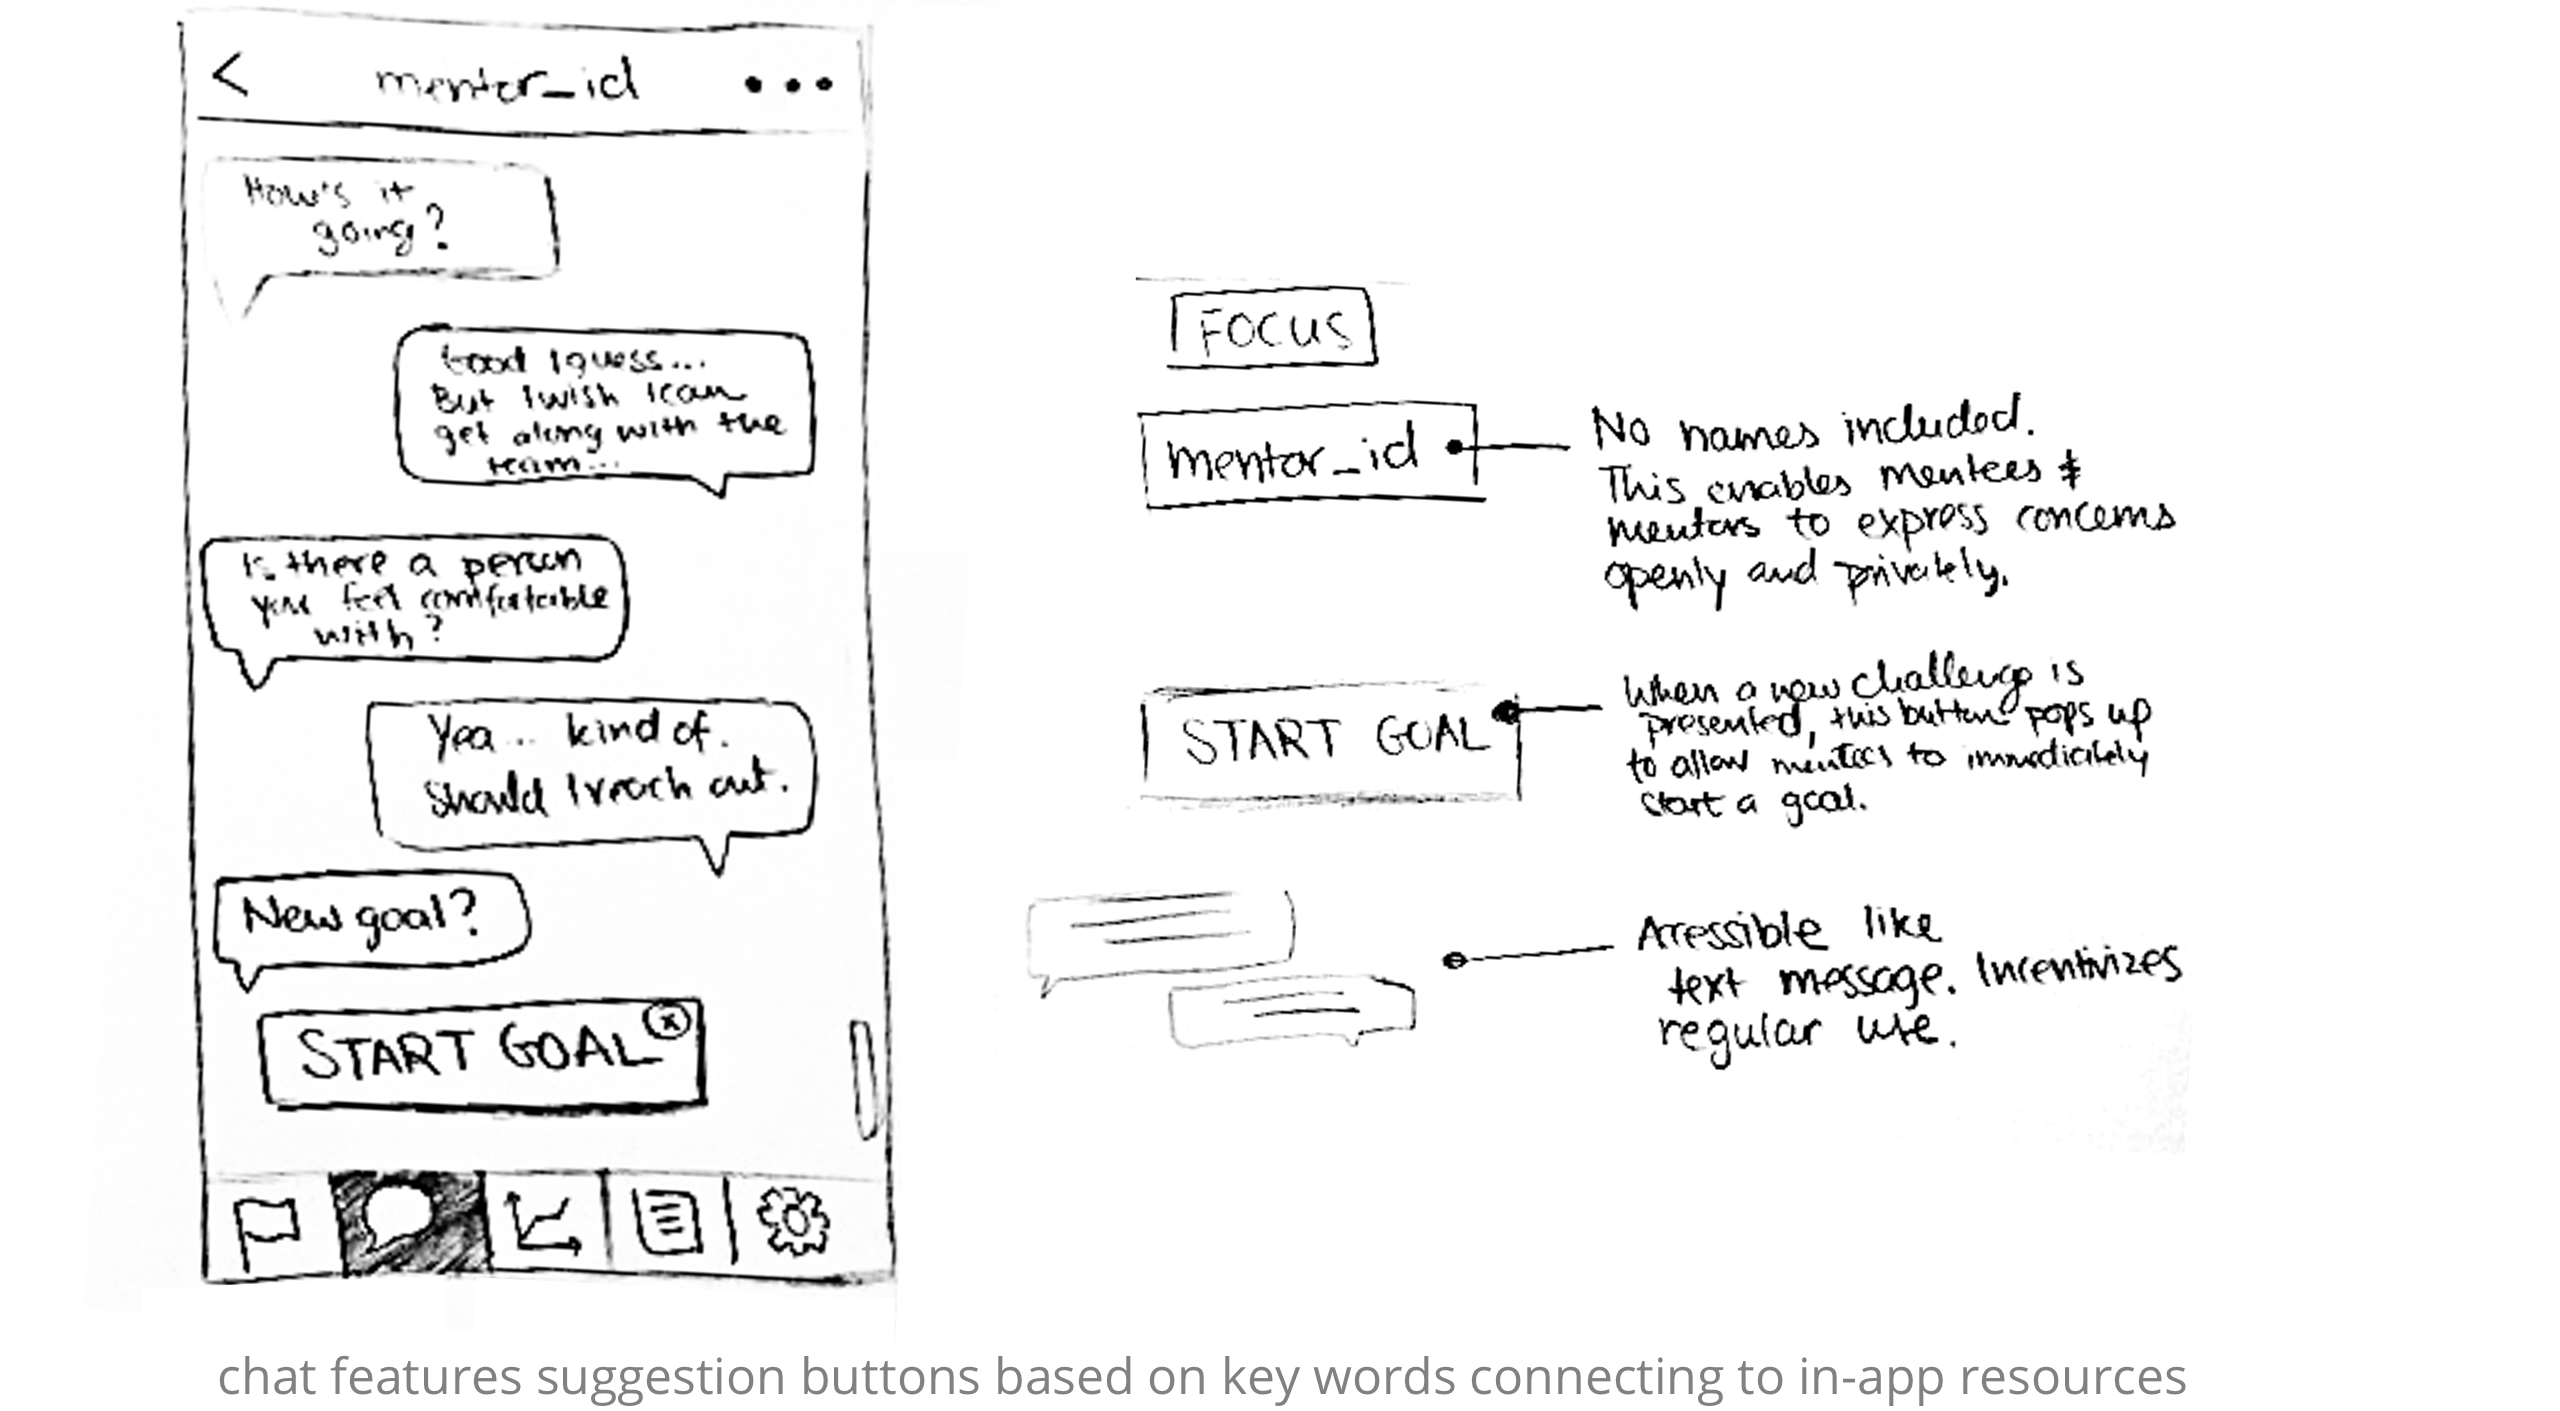 <
mentor_id
How's it
going?
Good I guess...
But I wish I can
get along with the
team...
Is there a person
you feel comfortable
with?
Yea... kind of.
Should I reach out.
New goal?
START GOAL
FOCUS
mentor_id
No names included.
This enables mentees &
mentors to express concerns
openly and privately.
START GOAL
When a new challenge is
presented, this button pops up
to allow mentees to immediately
start a goal.
Acessible like
text message. Incentivizes
regular use.
chat features suggestion buttons based on key words connecting to in-app resources